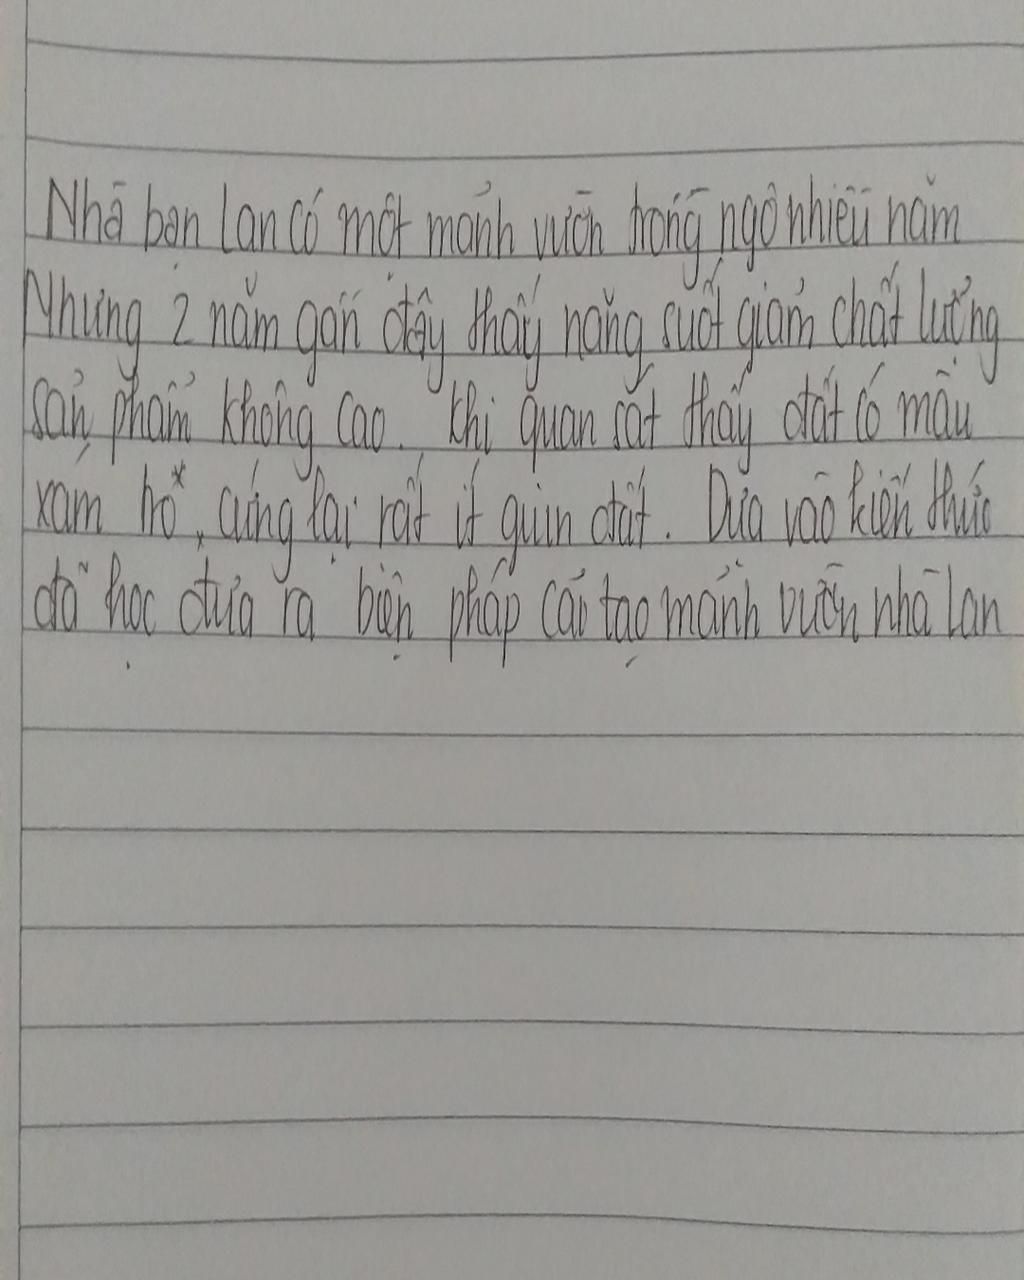 Nhà bạn Lan có một mảnh vườn trồng ngô nhiều năm
Nhưng 2 năm gần đây thấy năng suất giảm chất lượng
sản phẩm không cao. Khi quan sát thấy đất có màu
xám hồ, cứng lại rất ít giun đất. Dựa vào kiến thức
đã học đưa ra biện pháp cải tạo mảnh vườn nhà lan